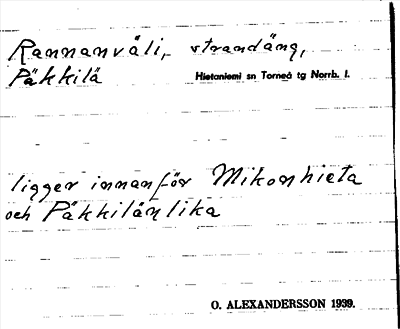 Rannanväli, strandäng,
Päkkilä Hietaniemi sn Torneå tg Norrb. l.
ligger innanför Mikonhieta
och Päkkilänlika
O. ALEXANDERSSON 1939.